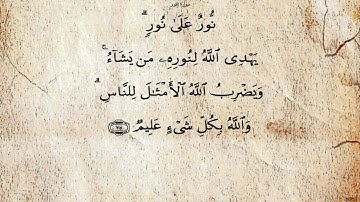 نُّورٌ عَلَىٰ نُورٍ ۗ
يَهْدِى ٱللَّهُ لِنُورِهِۦ مَن يَشَآءُ ۚ
وَيَضْرِبُ ٱللَّهُ ٱلْأَمْثَـٰلَ لِلنَّاسِ ۗ
وَٱللَّهُ بِكُلِّ شَىْءٍ عَلِيمٌ ۝٣٥